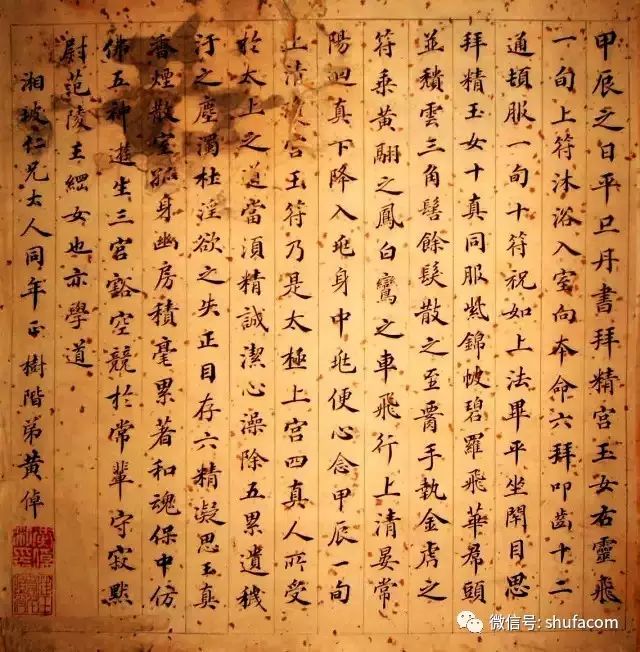 甲辰之日平旦丹書拜精宮玉女右靈飛
一旬上符沐浴入室向本命六拜叩齒十二
通頓服一旬十符祝如上法畢平坐閉目思
拜精玉女十真同服紫錦帔碧羅飛華帬頭
並穨雲三角髻餘髮散之至膂手執金虎之
符乘黃翮之鳳白鸞之車飛行上清晏常
陽迴真下降入兆身中兆便心念甲辰一旬
上清宮玉符乃是太極上宮四真人所受
於太上之道當須精誠潔心澡除五累遺穢
汙之塵濁杜淫欲之失正目存六精凝思玉真
香煙散室孤身幽房積毫累著和魂保中仿
佛五神遊生三宮豁空競於常輩守寂默
尉范陵王綱女也亦學道
湘坡仁兄大人同年正樹階弟黃倬
微信号: shufacom